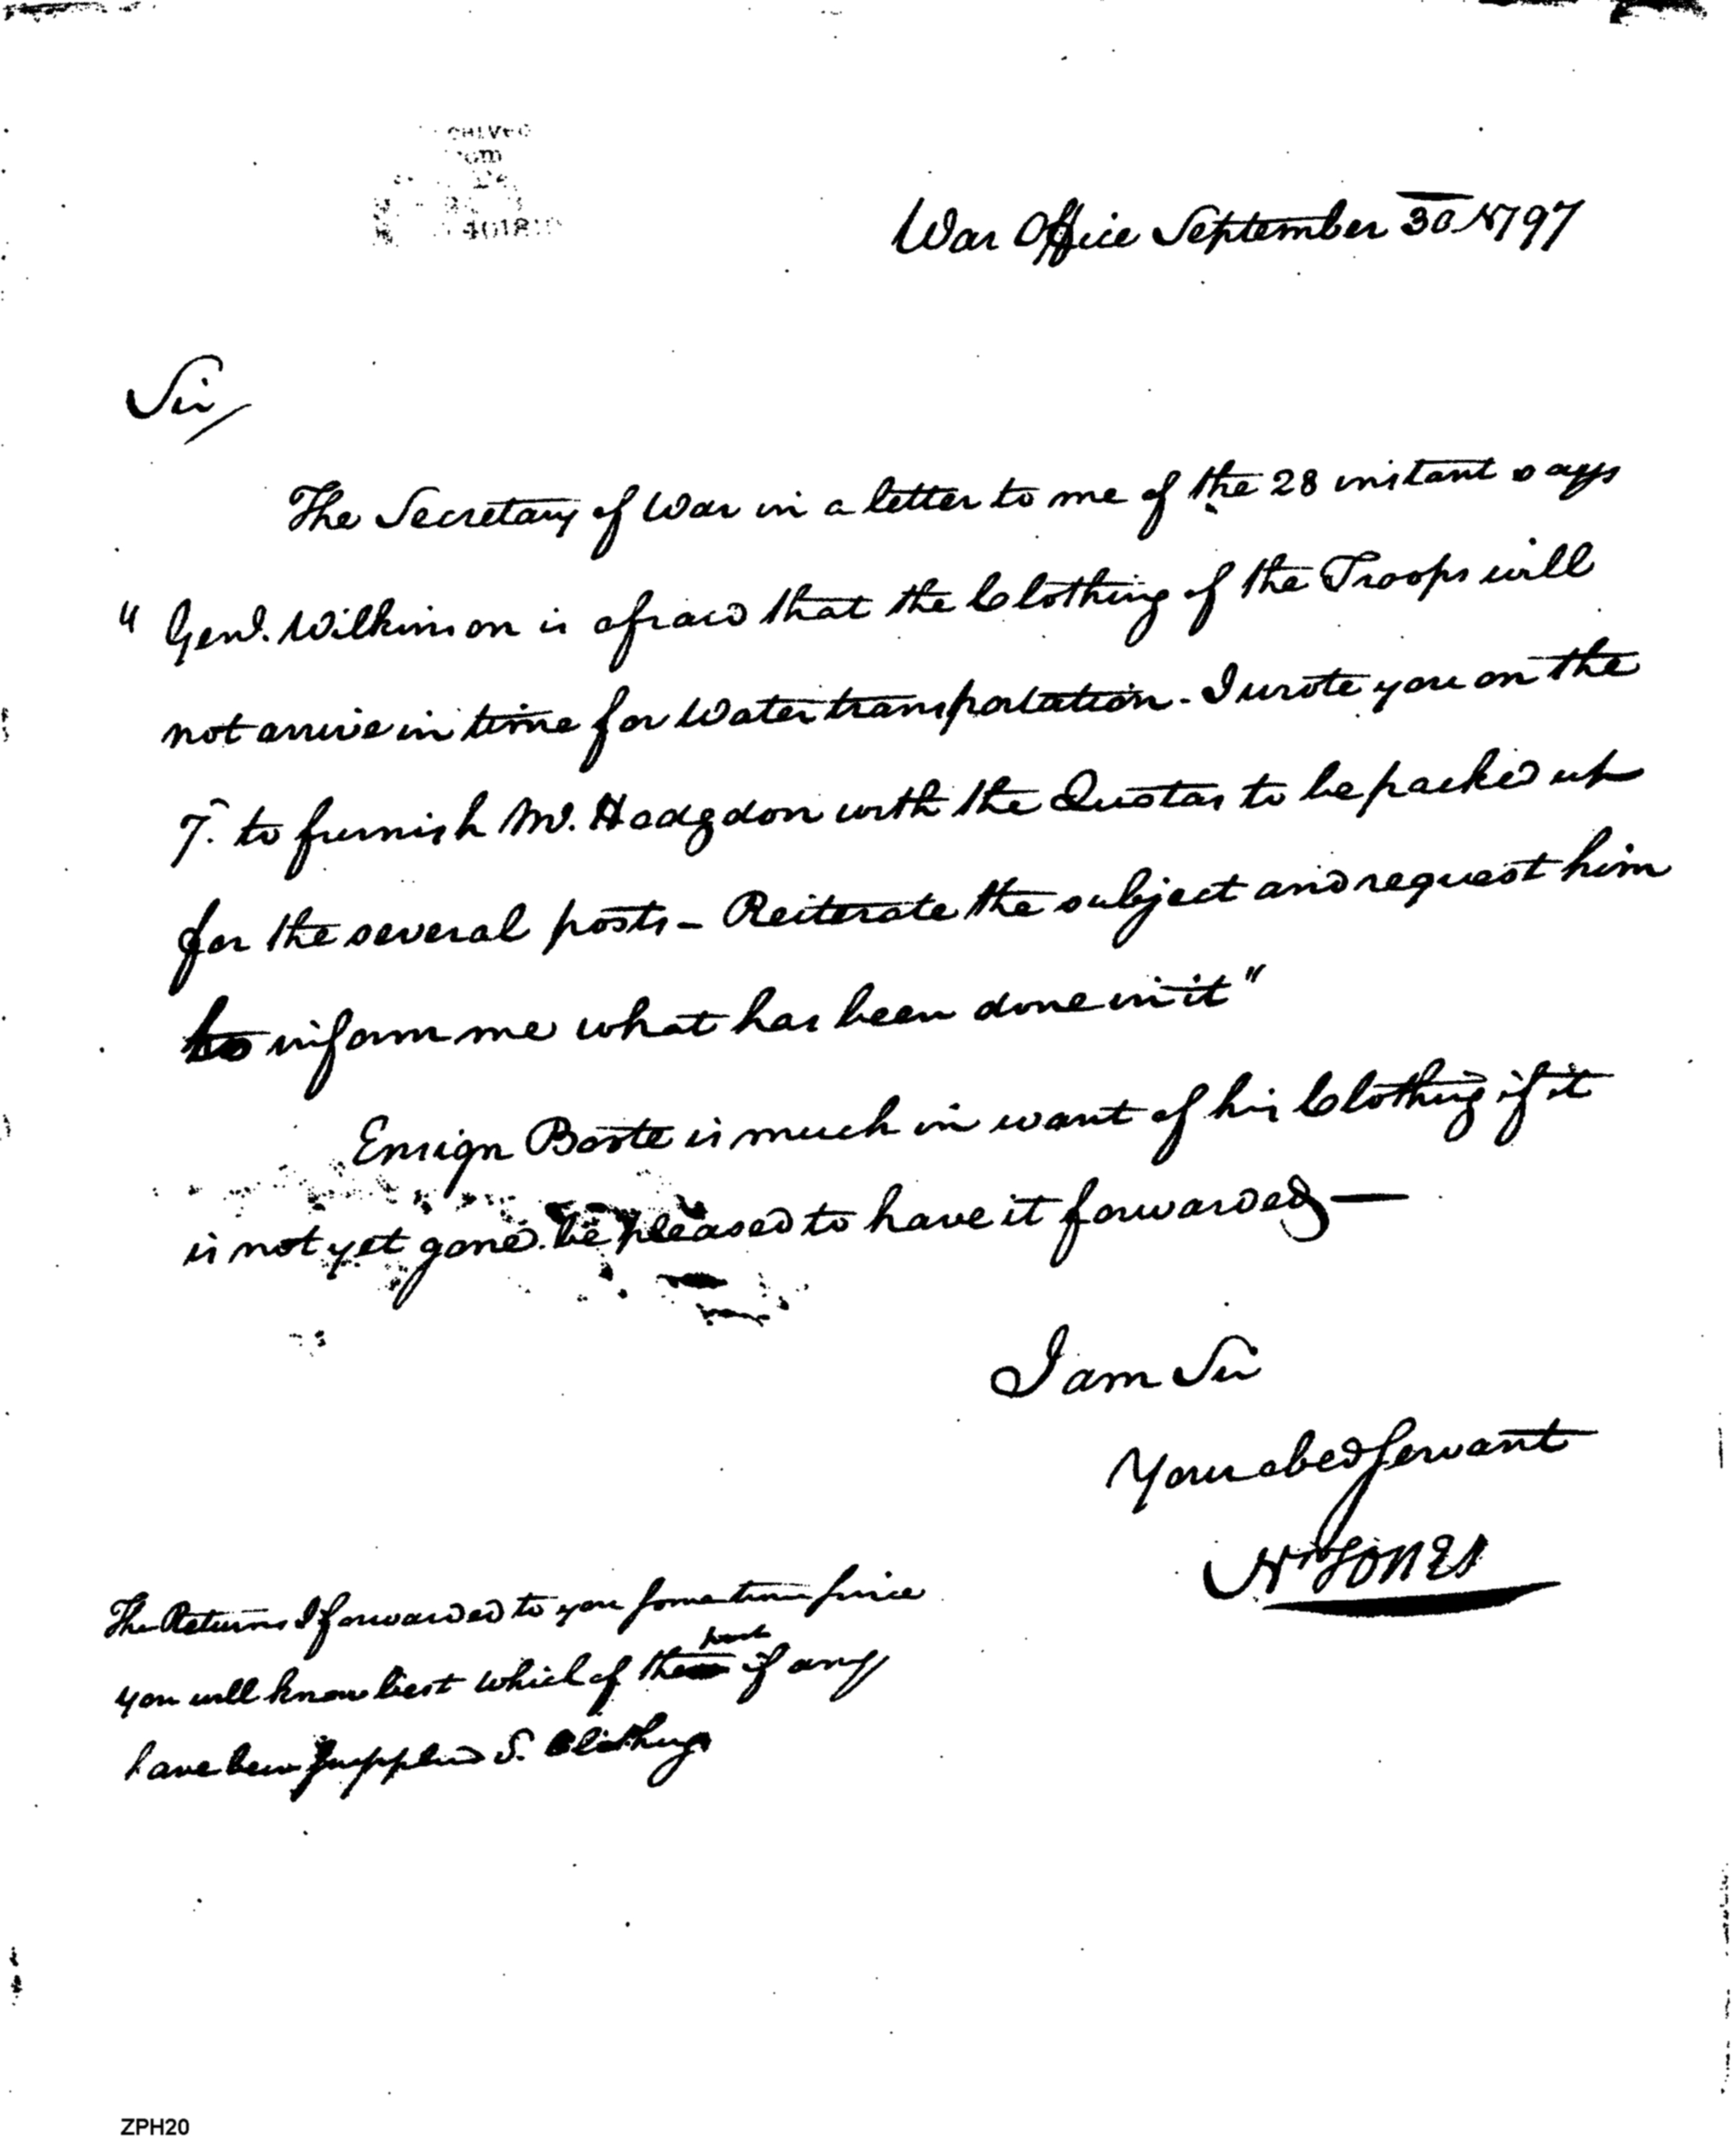 War Office September 30 1797
Sir
The Secretary of War in a letter to me of the 28 instant says
"Genl. Wilkinson is afraid that the Clothing of the Troops will
not arrive in time for Water transportation - I wrote you on the
7. to furnish Mr. Hodgdon with the Quotas to be packed up
for the several posts - Reiterate the subject and request him
to inform me what has been done in it"
Ensign Bootē is much in want of his Clothing if it
is not yet gone be pleased to have it forwarded —
I am Sir
Your obed Servant
Jones
The Returns I forwarded to you some time since
you will know best which of the if any
have been supplied S. Clothing
ZPH20